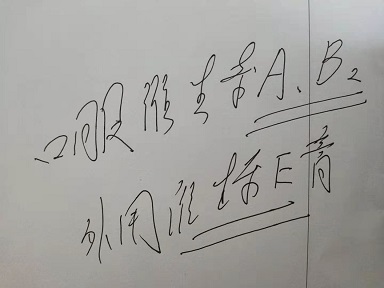 口服维生素A、B2
外用维生素E膏